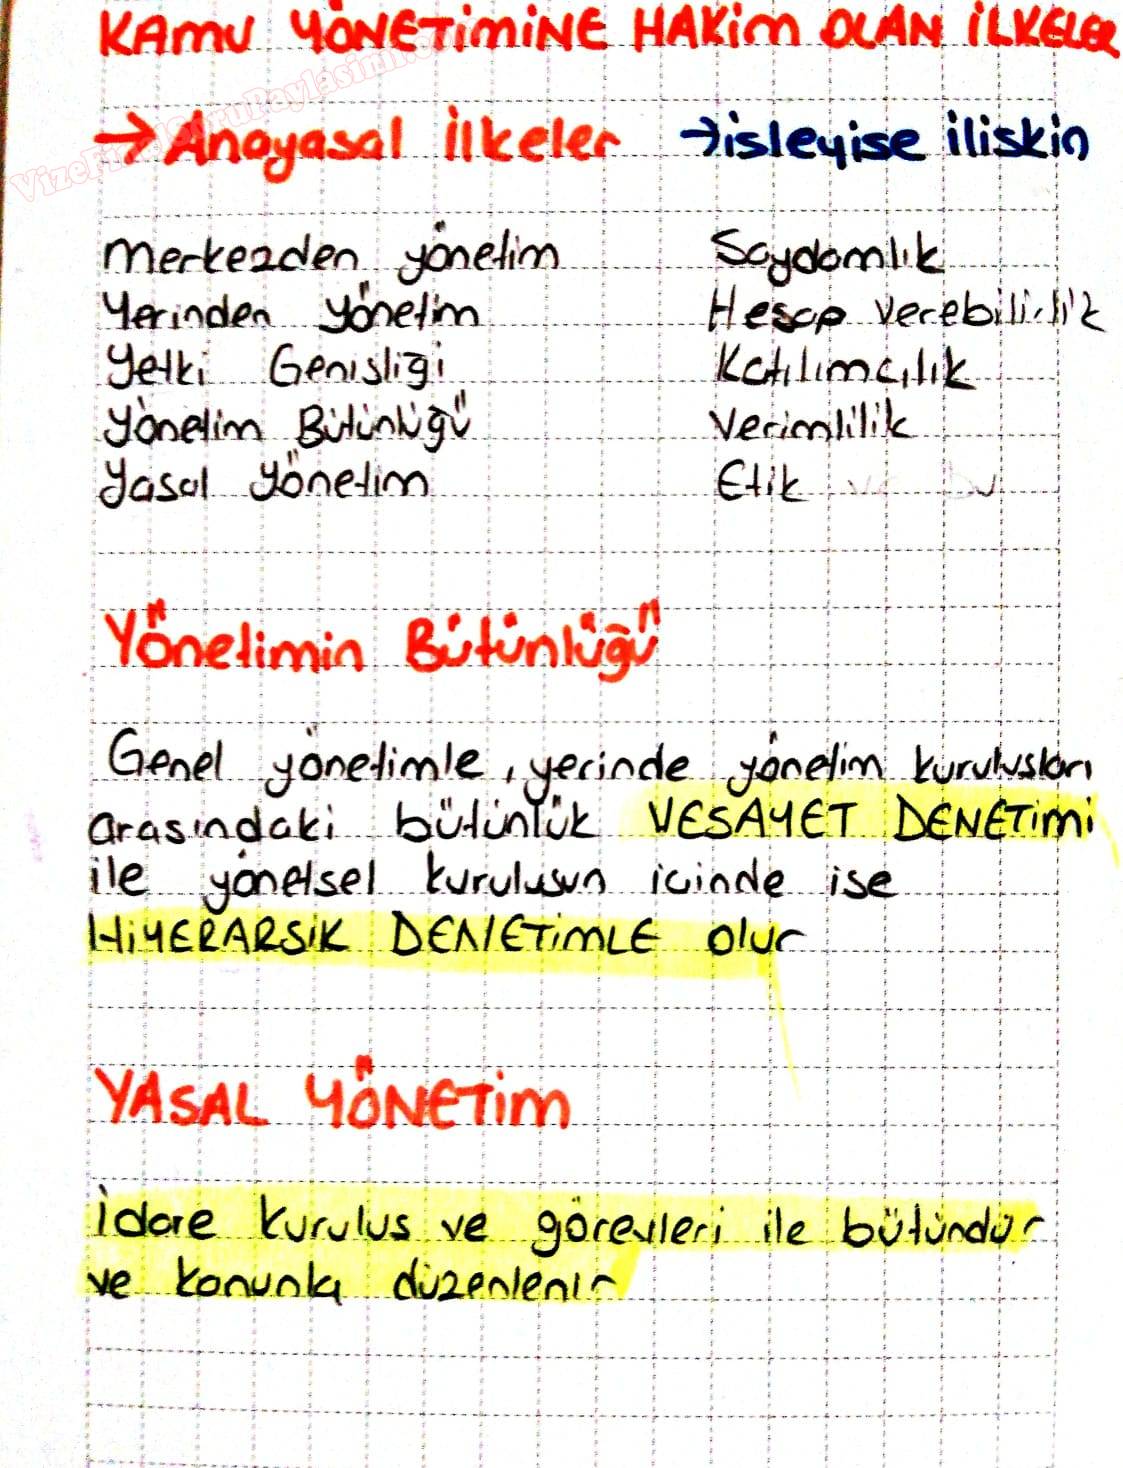 KAMU YÖNETİMİNE HAKİM OLAN İLKELER
→Anayasal İlkeler
→isleyise iliskin
Merkezden yönetim
Yerinden yönetim
Yetki Genisliği
Yönetim Bütünlüğü
Yasal Yönetim
Saydamlık
Hesap verebilirlik
Katılımcılık
Verimlilik
Etik
Yönetimin Bütünlüğü
Genel yönetimle, yerinde yönetim kurulusları
arasındaki bütünlük VESAYET DENETİMİ
ile yönetsel kurulusun icinde ise
HİYERARSİK DENETİMLE olur
YASAL YÖNETİM
İdare kurulus ve görevleri ile bütündür
ve kanunla düzenlenir